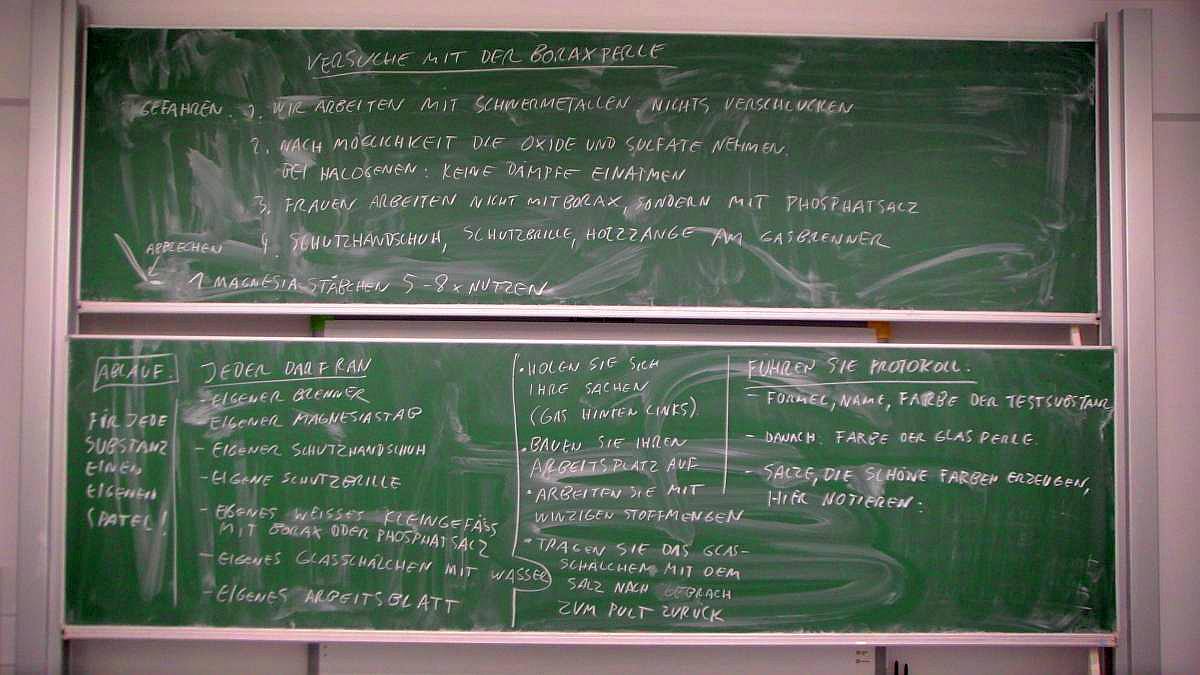 VERSUCHE MIT DER BORAXPERLE
GEFAHREN. 1. WIR ARBEITEN MIT SCHWERMETALLEN, NICHTS VERSCHLUCKEN
2. NACH MÖGLICHKEIT DIE OXIDE UND SULFATE NEHMEN.
BEI HALOGENEN: KEINE DÄMPFE EINATMEN
3. FRAUEN ARBEITEN NICHT MIT BORAX, SONDERN MIT PHOSPHATSALZ
4. SCHUTZHANDSCHUH, SCHUTZBRILLE, HOLZZANGE AM GASBRENNER
ABBRECHEN
1 MAGNESIA-STÄBCHEN 5-8 x NUTZEN
ABLAUF:
FÜR JEDE
SUBSTANZ
EINEN
EIGENEN
SPATEL!
JEDER DARF RAN
- EIGENER BRENNER
- EIGENER MAGNESIASTAB
- EIGENER SCHUTZHANDSCHUH
- EIGENE SCHUTZBRILLE
- EIGENES WEISSES KLEINGEFÄSS
MIT BORAX ODER PHOSPHATSALZ
- EIGENES GLASSCHÄLCHEN MIT WASSER
- EIGENES ARBEITSBLATT
• HOLEN SIE SICH
IHRE SACHEN
(GAS HINTEN LINKS).
• BAUEN SIE IHREN
ARBEITSPLATZ AUF
• ARBEITEN SIE MIT
WINZIGEN STOFFMENGEN
• TRAGEN SIE DAS GLAS-
SCHÄLCHEM MIT DEM
SALZ NACH GEBRACH
ZUM PULT ZURÜCK
FÜHREN SIE PROTOKOLL.
- FORMEL, NAME, FARBE DER TESTSUBSTANZ
- DANACH: FARBE DER GLASPERLE.
- SALZE, DIE SCHÖNE FARBEN ERZEUGEN,
HIER NOTIEREN: